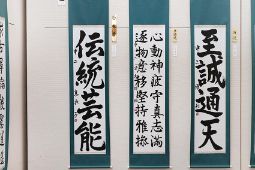 至誠通天
心動神疲守真志滿
逐物意移堅持雅操
伝統芸能